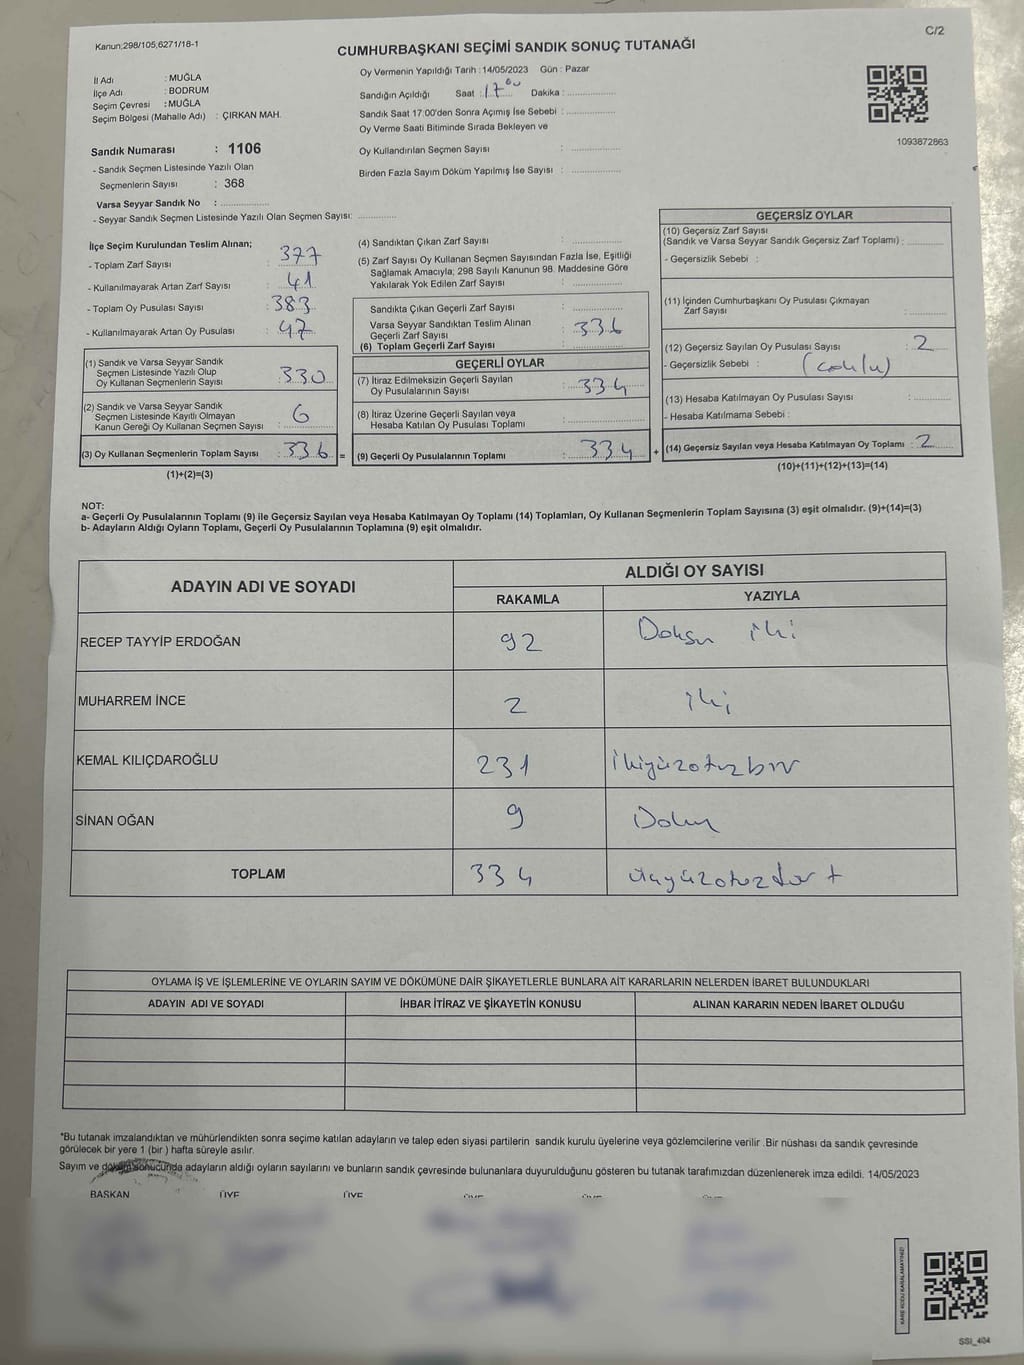 Kanun;298/105,6271/18-1
C/2
CUMHURBAŞKANI SEÇİMİ SANDIK SONUÇ TUTANAĞI
İl Adı : MUĞLA
İlçe Adı : BODRUM
Seçim Çevresi : MUĞLA
Seçim Bölgesi (Mahalle Adı) : ÇIRKAN MAH.
Oy Vermenin Yapıldığı Tarih : 14/05/2023 Gün : Pazar
Sandığın Açıldığı Saat : 17⁰⁰ Dakika : ................
Sandık Saat 17:00'den Sonra Açımış İse Sebebi : ................
Oy Verme Saati Bitiminde Sırada Bekleyen ve
Oy Kullandırılan Seçmen Sayısı : ................
Birden Fazla Sayım Döküm Yapılmış İse Sayısı : ................
1093872863
Sandık Numarası : 1106
- Sandık Seçmen Listesinde Yazılı Olan
Seçmenlerin Sayısı : 368
Varsa Seyyar Sandık No : ................
- Seyyar Sandık Seçmen Listesinde Yazılı Olan Seçmen Sayısı: ............
İlçe Seçim Kurulundan Teslim Alınan;
- Toplam Zarf Sayısı : 377
- Kullanılmayarak Artan Zarf Sayısı : 41
- Toplam Oy Pusulası Sayısı : 383
- Kullanılmayarak Artan Oy Pusulası : 47
(1) Sandık ve Varsa Seyyar Sandık
Seçmen Listesinde Yazılı Olup
Oy Kullanan Seçmenlerin Sayısı : 330
(2) Sandık ve Varsa Seyyar Sandık
Seçmen Listesinde Kayıtlı Olmayan
Kanun Gereği Oy Kullanan Seçmen Sayısı : 6
(3) Oy Kullanan Seçmenlerin Toplam Sayısı : 336 =
(1)+(2)=(3)
(4) Sandıktan Çıkan Zarf Sayısı : ................
(5) Zarf Sayısı Oy Kullanan Seçmen Sayısından Fazla İse, Eşitliği
Sağlamak Amacıyla; 298 Sayılı Kanunun 98. Maddesine Göre
Yakılarak Yok Edilen Zarf Sayısı : ................
Sandıkta Çıkan Geçerli Zarf Sayısı : ................
Varsa Seyyar Sandıktan Teslim Alınan
Geçerli Zarf Sayısı : 336
(6) Toplam Geçerli Zarf Sayısı : ................
GEÇERLİ OYLAR
(7) İtiraz Edilmeksizin Geçerli Sayılan
Oy Pusulalarının Sayısı : 334
(8) İtiraz Üzerine Geçerli Sayılan veya
Hesaba Katılan Oy Pusulası Toplamı : ................
(9) Geçerli Oy Pusulalarının Toplamı : 334 +
GEÇERSİZ OYLAR
(10) Geçersiz Zarf Sayısı
(Sandık ve Varsa Seyyar Sandık Geçersiz Zarf Toplamı) : ............
- Geçersizlik Sebebi :
(11) İçinden Cumhurbaşkanı Oy Pusulası Çıkmayan
Zarf Sayısı : ............
(12) Geçersiz Sayılan Oy Pusulası Sayısı : 2
- Geçersizlik Sebebi :
(13) Hesaba Katılmayan Oy Pusulası Sayısı : ............
- Hesaba Katılmama Sebebi :
(14) Geçersiz Sayılan veya Hesaba Katılmayan Oy Toplamı : 2
(10)+(11)+(12)+(13)=(14)
NOT:
a- Geçerli Oy Pusulalarının Toplamı (9) ile Geçersiz Sayılan veya Hesaba Katılmayan Oy Toplamı (14) Toplamları, Oy Kullanan Seçmenlerin Toplam Sayısına (3) eşit olmalıdır. (9)+(14)=(3)
b- Adayların Aldığı Oyların Toplamı, Geçerli Oy Pusulalarının Toplamına (9) eşit olmalıdır.
ADAYIN ADI VE SOYADI
ALDIĞI OY SAYISI
RAKAMLA YAZIYLA
RECEP TAYYİP ERDOĞAN 92 Doksan iki
MUHARREM İNCE 2 iki
KEMAL KILIÇDAROĞLU 231 ikiyüzotuzbir
SİNAN OĞAN 9 Dokuz
TOPLAM 334 üçyüzotuzdört
OYLAMA İŞ VE İŞLEMLERİNE VE OYLARIN SAYIM VE DÖKÜMÜNE DAİR ŞİKAYETLERLE BUNLARA AİT KARARLARIN NELERDEN İBARET BULUNDUKLARI
ADAYIN ADI VE SOYADI İHBAR İTİRAZ VE ŞİKAYETİN KONUSU ALINAN KARARIN NEDEN İBARET OLDUĞU
*Bu tutanak imzalandıktan ve mühürlendikten sonra seçime katılan adayların ve talep eden siyasi partilerin sandık kurulu üyelerine veya gözlemcilerine verilir .Bir nüshası da sandık çevresinde
görülecek bir yere 1 (bir ) hafta süreyle asılır.
Sayım ve döküm sonucunda adayların aldığı oyların sayılarını ve bunların sandık çevresinde bulunanlara duyurulduğunu gösteren bu tutanak tarafımızdan düzenlenerek imza edildi. 14/05/2023
BAŞKAN ÜYE ÜYE ÜYE ÜYE ÜYE
KARE KODU KARALAMAYINIZ!
SSI_404